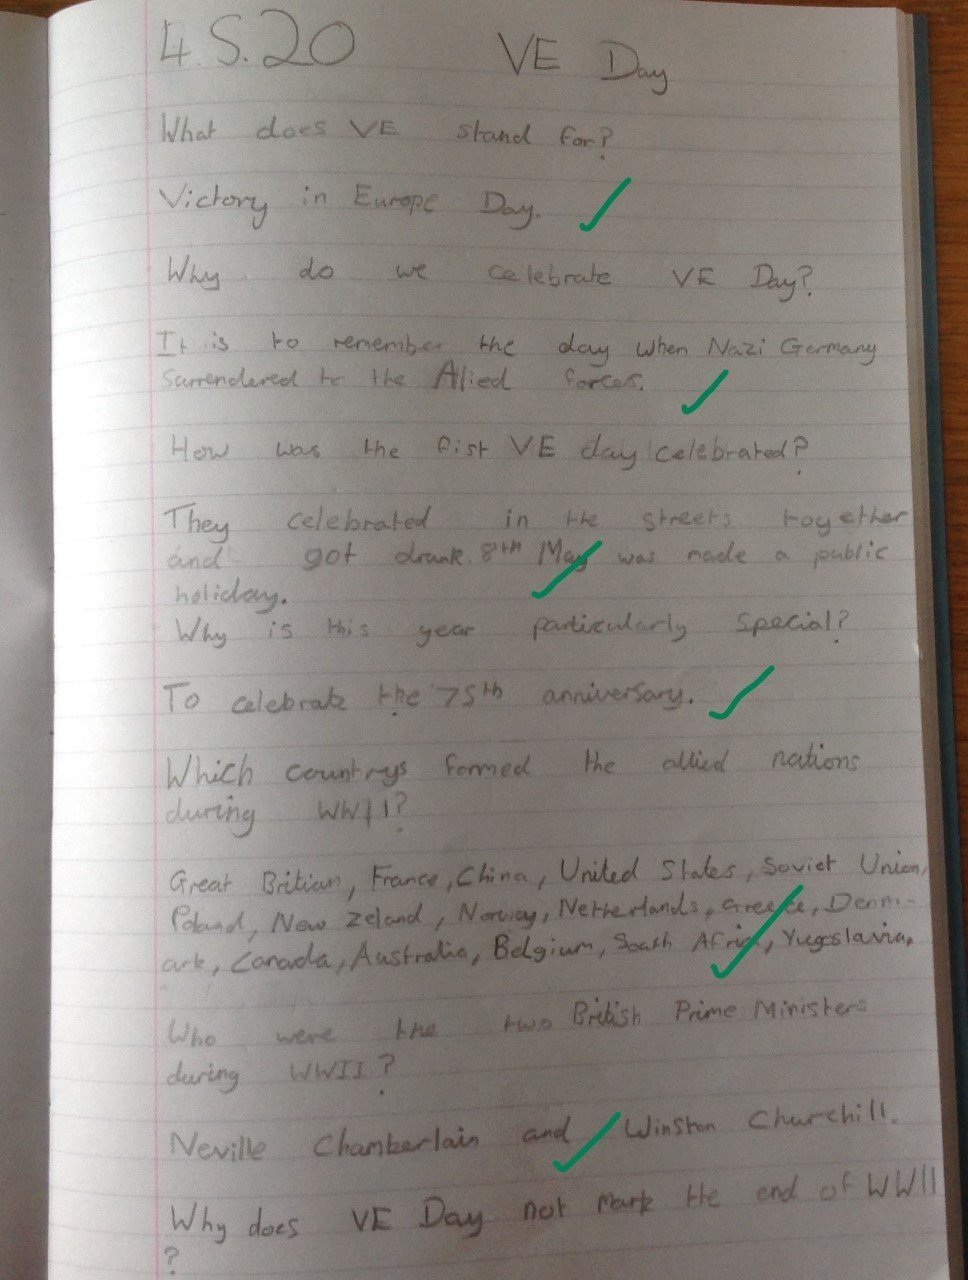 4.5.20 VE Day
What does VE stand for?
Victory in Europe Day.
Why do we celebrate VE Day?
It is to remember the day when Nazi Germany
surrendered to the Alied forces.
How was the fist VE day celebrated?
They celebrated in the streets together
and got drunk. 8th May was made a public
holiday.
Why is this year particularly special?
To celebrate the 75th anniversary.
Which countrys formed the allied nations
during WWII?
Great Britian, France, China, United States, Soviet Union,
Poland, New Zeland, Norway, Netherlands, Greece, Denm-
ark, Canada, Australia, Belgium, South Africa, Yugoslavia.
Who were the two British Prime Ministers
during WWII?
Neville Chamberlain and Winston Churchill.
Why does VE Day not mark the end of WWII
?